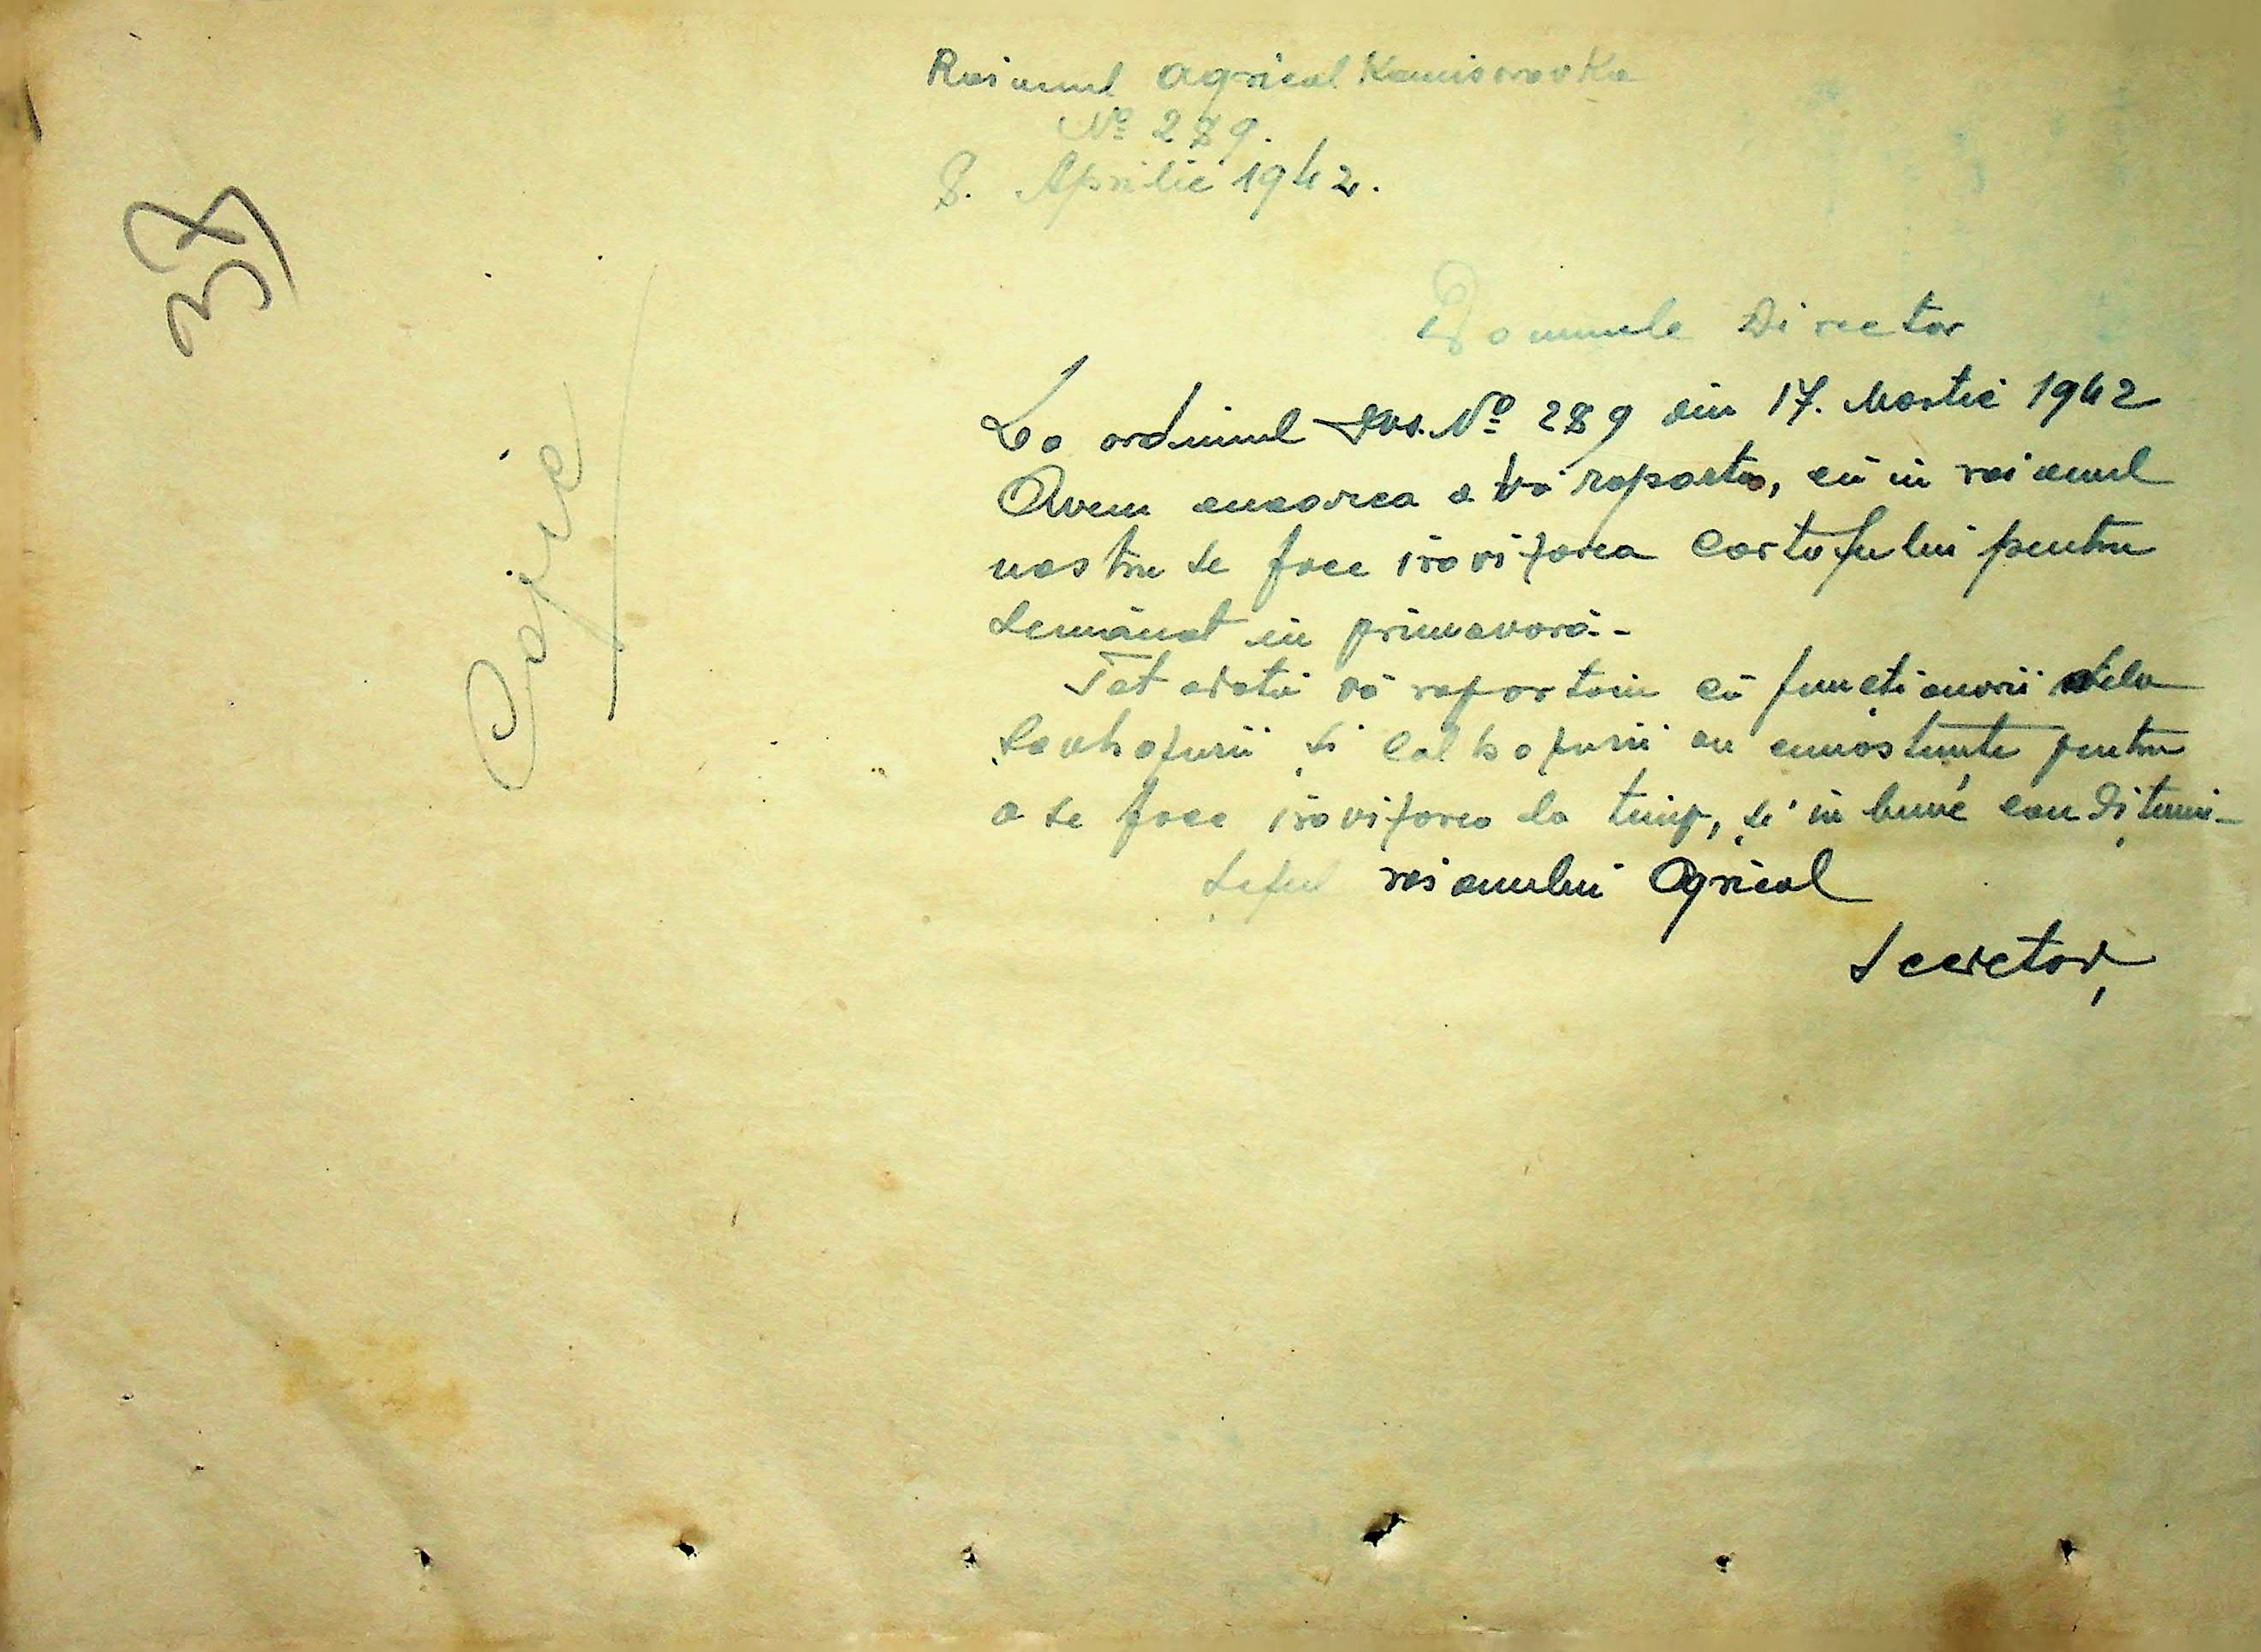 37
Copie
Raionul Agricol Kamisovovka
Nº 289.
8. Aprilie 1942.
Domnule Director
La ordinul Dvs. Nº 289 din 17. Martie 1942
Avem onoarea a Vă raporta, că in raionul
nostru se face iarovizarea cartofului pentru
semănat in primavară.-
Tot odată vă raportăm că funcționarii dela
Sovhozurii și Colhozurii au cunoștuințe pentru
a se face iarovizarea la timp, și in bune condițiuni-
Șeful raionului Agricol
Secretar,